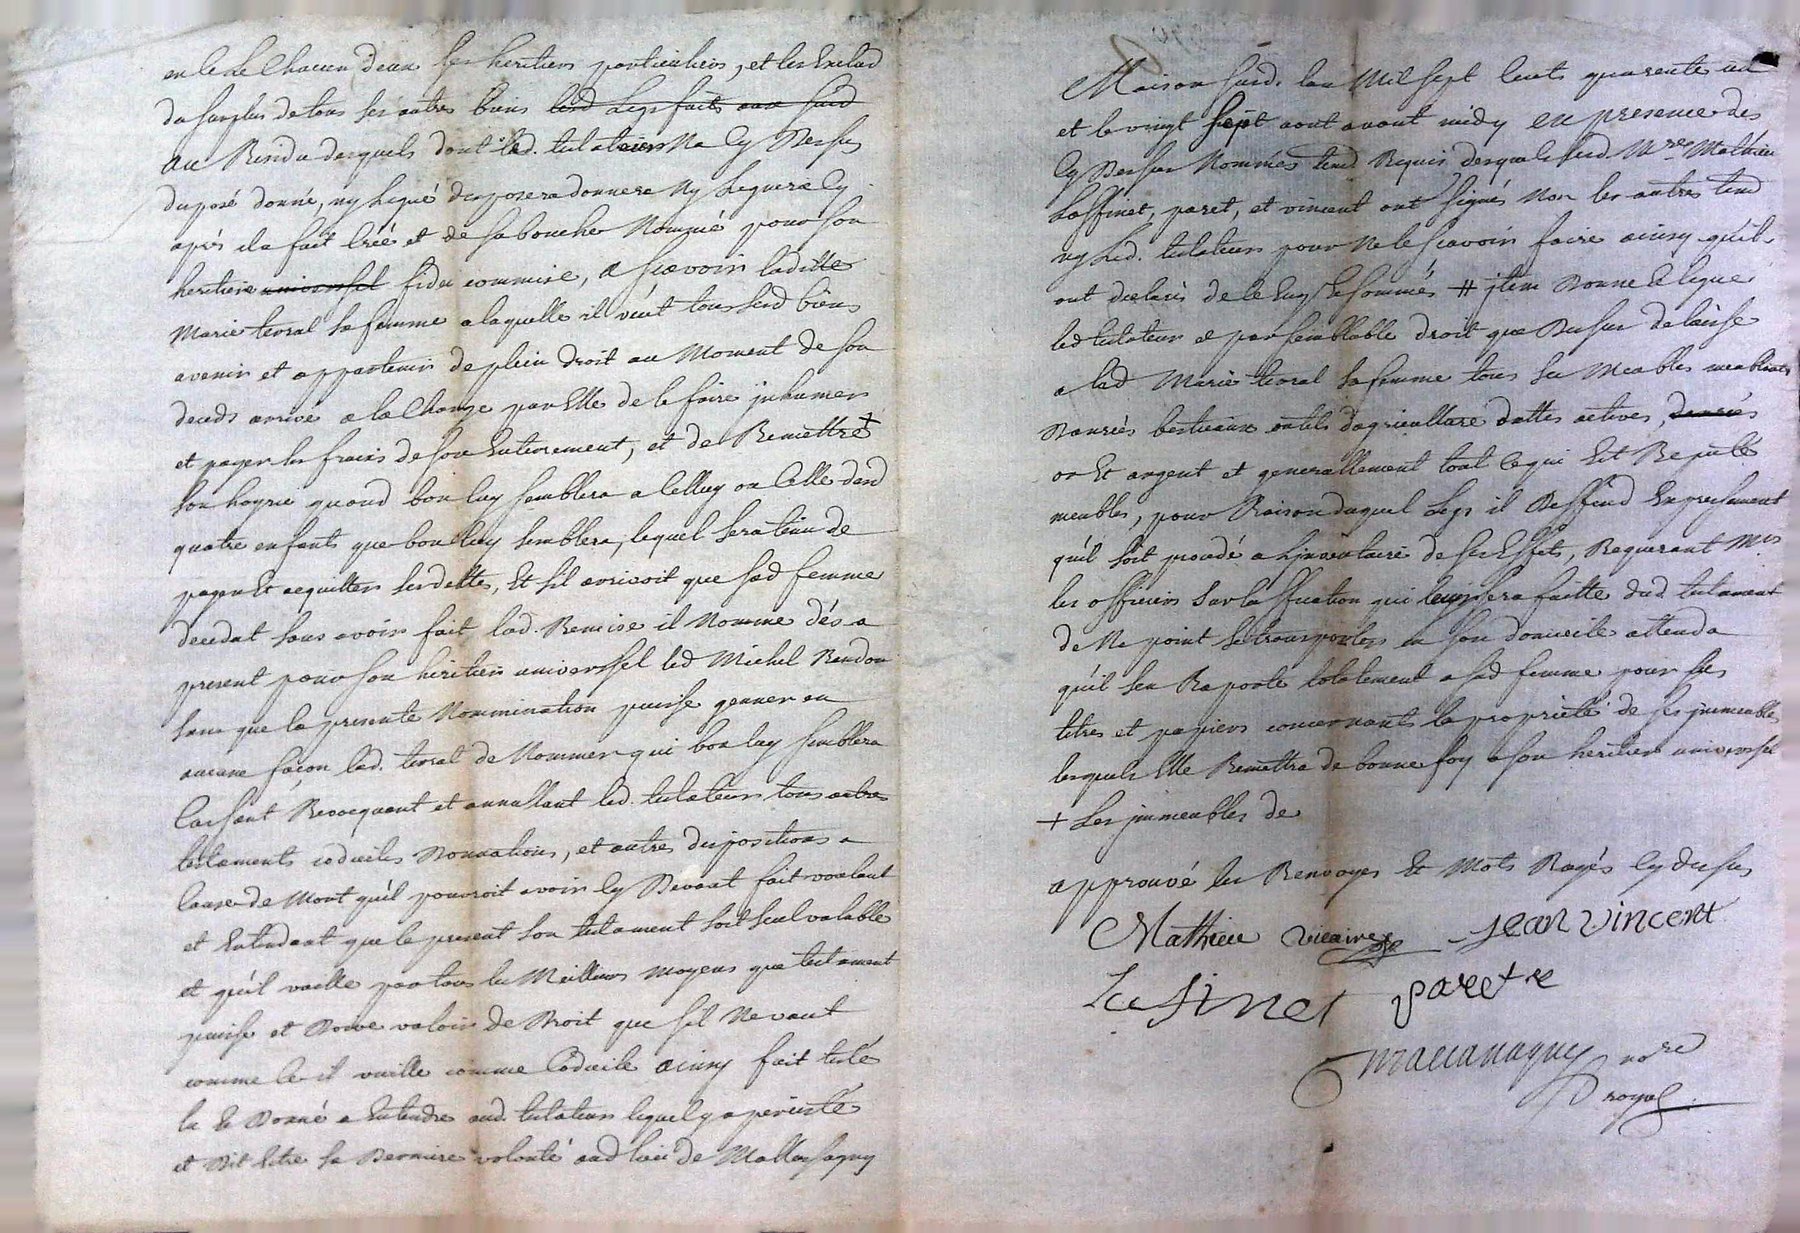 en ce le chacun deux ses heritiers particuliers, et les Exclud
du surplus de tous ses autres biens lesd Legs faits aux susd
au Residu desquels dont led. testateur Na Cy Dessus
disposé donné, ny Legué disposera donnera Ny Leguera Cy
après il a fait créé et de sa bouche Nommé pour son
heritiere universel fidei commise, a scavoir laditte
Marie teoral sa femme a laquelle il veut tous sesd biens
avenir et appartenir de plein droit au Moment de son
deceds arrivé a la Charge par Elle de le faire inhumer
et payer les frais de son Enterrement, et de Remettre +
son hoyrie quand bon luy semblera a Celluy ou Celle desd
quatre enfants que bon luy semblera, lequel sera tenu de
payer Et acquitter ses dettes, Et sil arrivoit que sad femme
decedat sans avoir fait lad. Remise il Nomme dés a
present pour son heritier universsel led Michel Rendon
sans que la presente Nommination puisse genner en
aucune façon lad. teoral de Nommer qui bon luy semblera
Cassant Revocquant et annullant led. testateur tous autres
testaments codiciles Donnations, et autres dispositions a
Cause de Mort qu'il pourroit avoir Cy Devant fait voulant
et Entendant que le present son testament soit seul valable
et qu'il vaille par tous les Meilleurs Moyens que testament
puisse et Doive valoir de Droit que sil Ne vaut
comme Ce il vaille comme Codicile ainsy fait testé
lu Et Donné a Entendre aud. testateur lequel y a percisté
et Dit Estre sa Derniere volonté aud lieu de Mallassagny
Maison susd. lan Mil sept Cents quarente un
et le vingt sept aout avant midy en presence des
Cy Dessus Nommés tesd Requis desquels lesd. Mre Mathieu
Laffinet, paret, et vincent ont signés Non les autres tesd
ny Led. testateur pour Ne le scavoir faire ainsy qu'ils
ont declaré de ce Enq. et sommés # jtem Donne Et legue
led testateur et par semblable droit que Dessus delaisse
a lad Marie teoral sa femme tous ses Meubles meublants
Danrées bestieaux outils d'agriculture dettes actives, danrées
or Et argent et generallement tout Ce qui Est Reputé
meubles, pour Raison duquel Legs il Deffend Expressement
qu'il soit procedé a Linventaire de ses Effets, Requerant Mrs
les officiers sur la ssination qui leur sera faitte dud testament
de Ne point se transporter en son domicile attendu
qu'il sen Raporte totalement a sad femme pour ses
titres et papiers concernants la proprieté de ses jmmeubles
lesquels Elle Remettra de bonne foy a son heritier universsel
+ Les jmmeubles de
approuvé les Renvoyes Et Mots Rayés Cy dessus
Mathieu vicaire Jean vincent
Lafinet paret
nore
royal